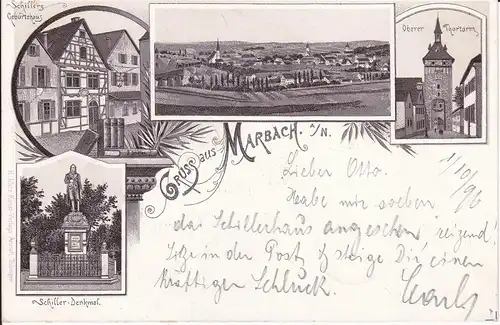 Schillers
Geburtshaus
Oberer Thorturm
GRUSS aus MARBACH a/N.
1/10 96
Lieber Otto.
Habe mir soeben
das Schillerhaus angesehen reizend!
Sitze in der Post & steige Dir einen
kräftigen Schluck.
Schiller-Denkmal.